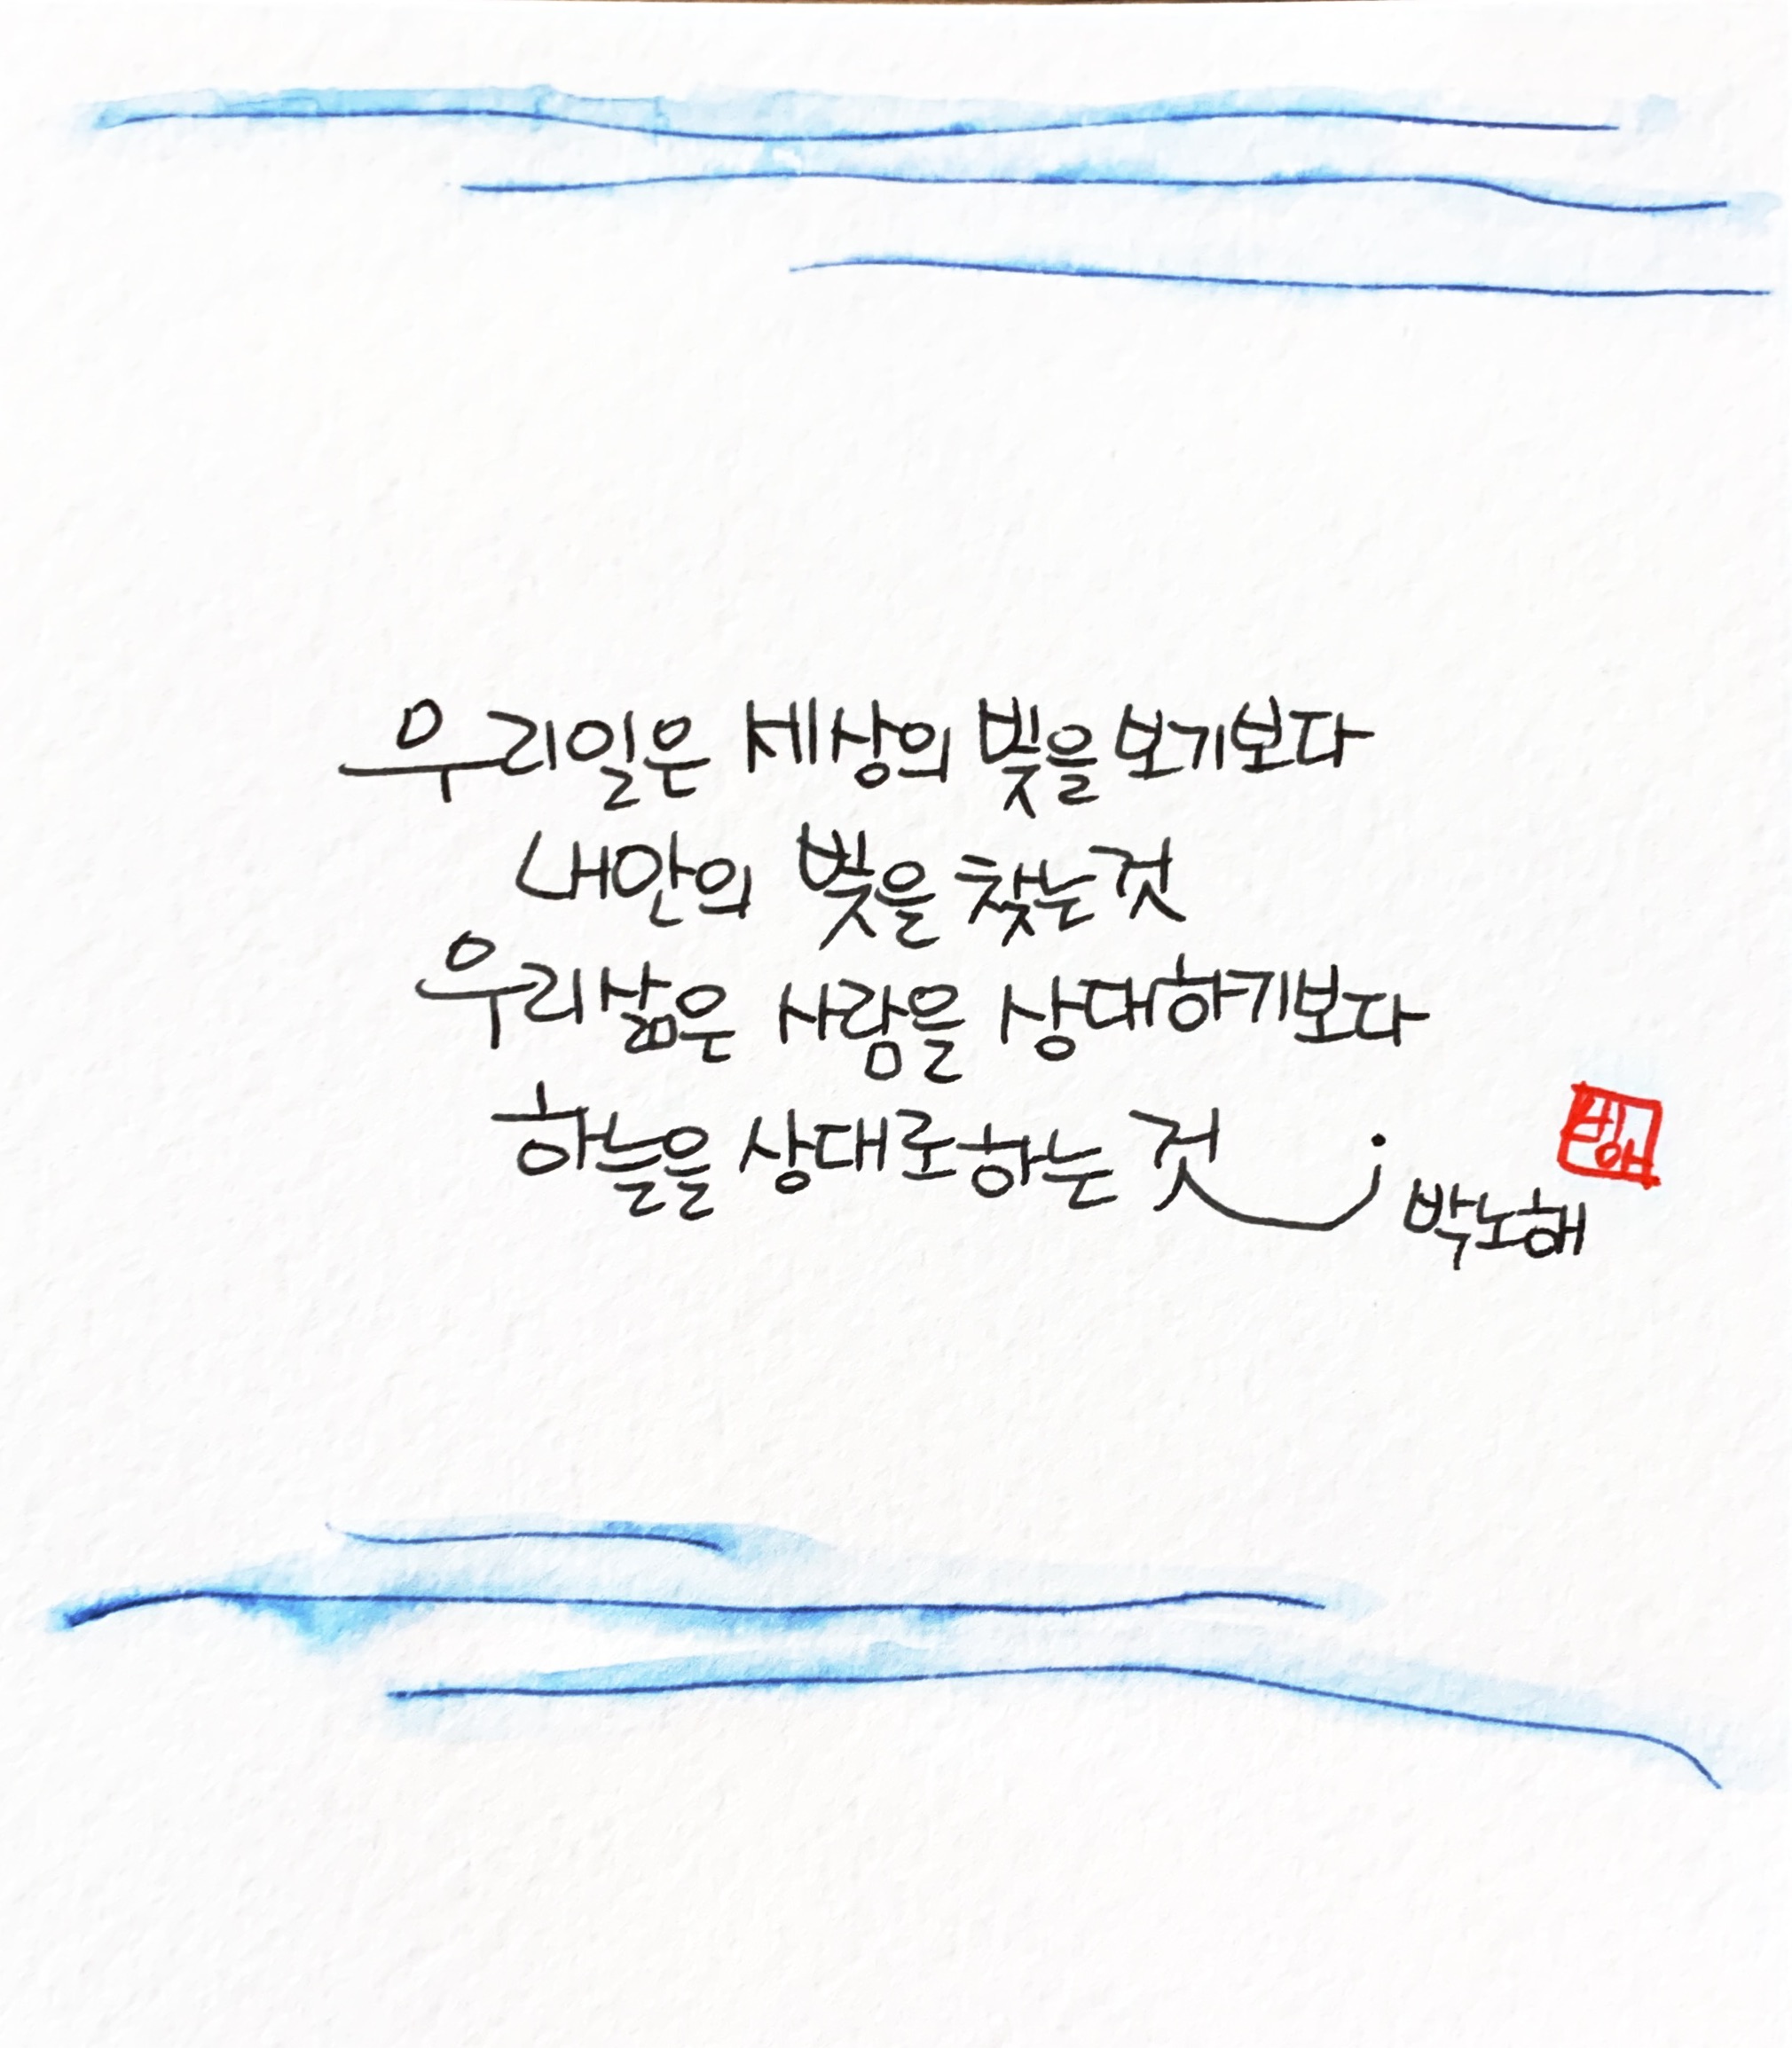 우리일은 세상의 빛을 보기보다
내안의 빛을 찾는것
우리삶은 사람을 상대하기보다
하늘을 상대로하는 것
박노해